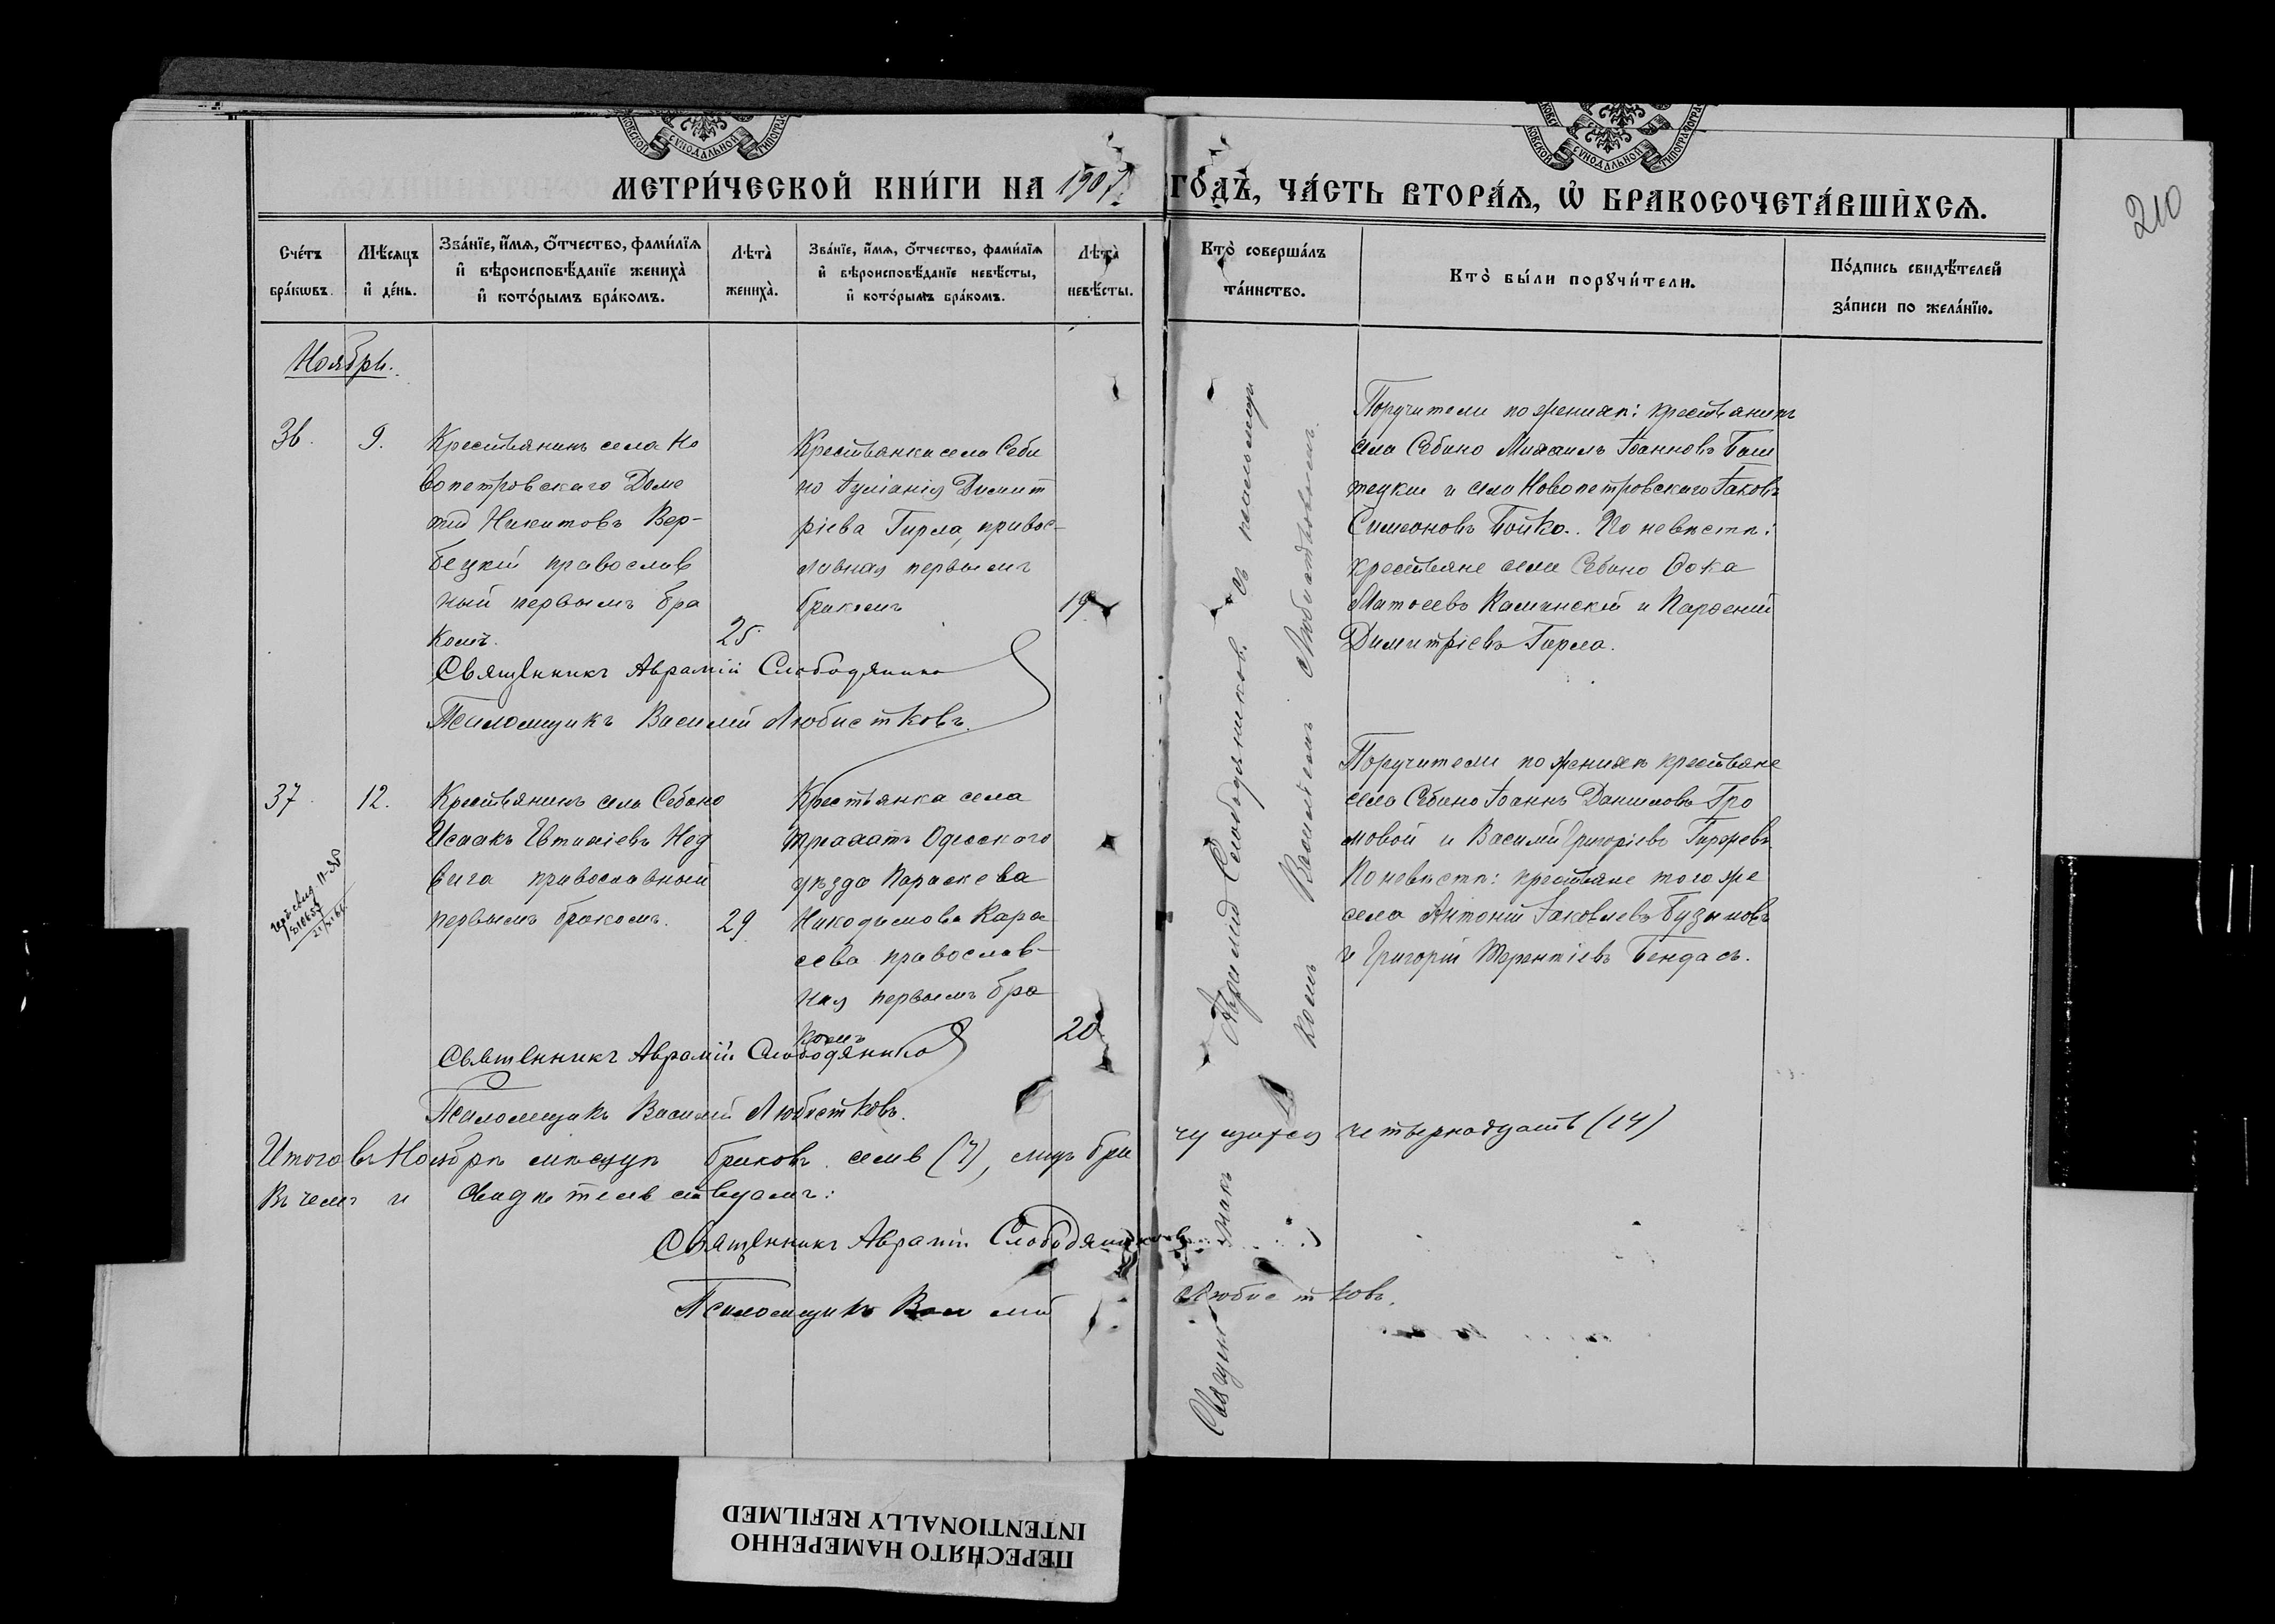 МОСКОВСКОЙ СУНОДАЛЬНОЙ ТИПОГРАФ
МОСКОВСКОЙ СУНОДАЛЬНОЙ ТИПОГРАФ
МЕТРИ́ЧЕСКОЙ КНИ́ГИ НА 1907 ГО́ДЪ, ЧА́СТЬ ВТОРА́Ѧ, Ѽ БРАКОСОЧЕТА́ВШИХСѦ.
210
Сче́тъ бра́кѡвъ.
Мѣ́сѧцъ и҆ де́нь.
Зва́нїе, и҆́мѧ, ѻ҆́тчество, фами́лїѧ и҆ вѣроисповѣ́данїе жениха̀ и҆ кото́рымъ бра́комъ.
Лѣта̀ жениха̀.
Зва́нїе, и҆́мѧ, ѻ҆́тчество, фами́лїѧ и҆ вѣроисповѣ́данїе невѣ́сты, и҆ кото́рымъ бра́комъ.
Лѣта̀ невѣ́сты.
Кто̀ соверша́лъ та́инство.
Кто̀ бы́ли порꙋчи́тели.
По́дпись свидѣ́телей за́писи по жела́нїю.
Ноябрь.
36.
9.
Крестьянинъ села Но
вопетровскаго Доме
тій Никитовъ Вер-
бецкій православ
ный первымъ бра
комъ.
25.
Крестьянка села Себи
но Іуліанія Димит
ріева Гирла, правос-
лавная первымъ
бракомъ
19
Священникъ Аврамій Слободяников
Псаломщикъ Василій Любистковъ.
Поручители по женихѣ: крестьянинъ
села Себино Михаилъ Іоанновъ Баш
тецкій и села Новопетровскаго Іаковъ
Симеоновъ Бойко. По невѣстѣ:
крестьяне села Себино Ѳока
Матѳеевъ Каминскій и Парѳеній
Димитріевъ Гирла.
37.
12.
Крестьянинъ села Себино
Исаакъ Евтихіевъ Нед
вига православный
первымъ бракомъ.
29
Крестьянка села
Трихатъ Одесскаго
уѣзда Параскева
Никодимова Кара
сева православ-
ная первымъ бра
комъ
20
Священникъ Аврамій Слободяников
Псаломщикъ Василій Любистковъ.
Поручители по женихѣ крестьяне
села Себино Іоаннъ Даниловъ Гро
мовой и Василій Григоріевъ Гиржевъ
По невѣстѣ: крестьяне того же
села Антоній Іаковлевъ Бузыновъ
и Григорій Терентіевъ Бендасъ.
Священникъ Аврамій Слободяниковъ съ псаломщи
комъ Василіемъ Любистковымъ.
Итого въ Ноябрѣ мѣсяцѣ браковъ семь (7), лицъ бра чущихся четырнадцать (14)
Въ чемъ и свидѣтельствуемъ:
Священникъ Аврамій Слободяниковъ
Псаломщикъ Василій Любистковъ.
ПЕРЕСНЯТО НАМЕРЕННО
INTENTIONALLY REFILMED